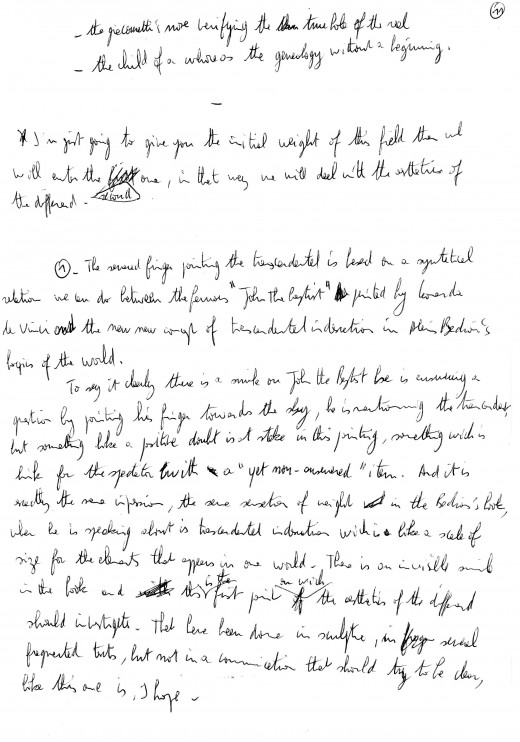 - the giacometti's nose verifying the true hole of the real
- the child of a whore as the genealogy without a beginning.
-
* I'm just going to give you the initial weight of this field then we
will enter the second one, in that way we will deal with the esthetics of
the differend -
① - The severed finger pointing the transcendental is based on a synthetical
relation we can do between the famous "John The baptist" painted by leonardo
de Vinci and the new new concept of transcendental indexation in Alain Badiou's
logics of the world.
To say it clearly there is a smile on John the Baptist face is answering a
question by pointing his finger towards the sky, he is mentionning the transcendental
but something like a positive doubt is at stake in this pointing, something wich is
link for the spectator with a "yet non-answered" item. And it is
exactly the same impression, the same sensation of weight in the Badiou's book,
when he is speaking about is transcendental indexation wich is like a scale of
size for the elements that appears in one world - There is an invisible smile
in the book and this is the first point on wich the esthetics of the differend
should investigate - That have been done in sculpture, in several
fragmented texts, but not in a communication that should try to be clear,
like this one is, I hope -